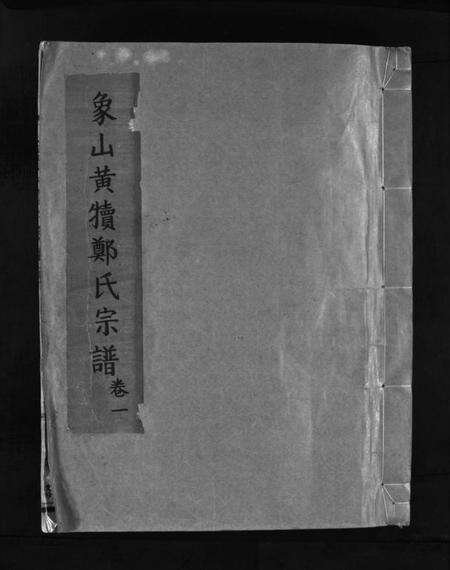 象山黄犢鄭氏宗譜
卷一